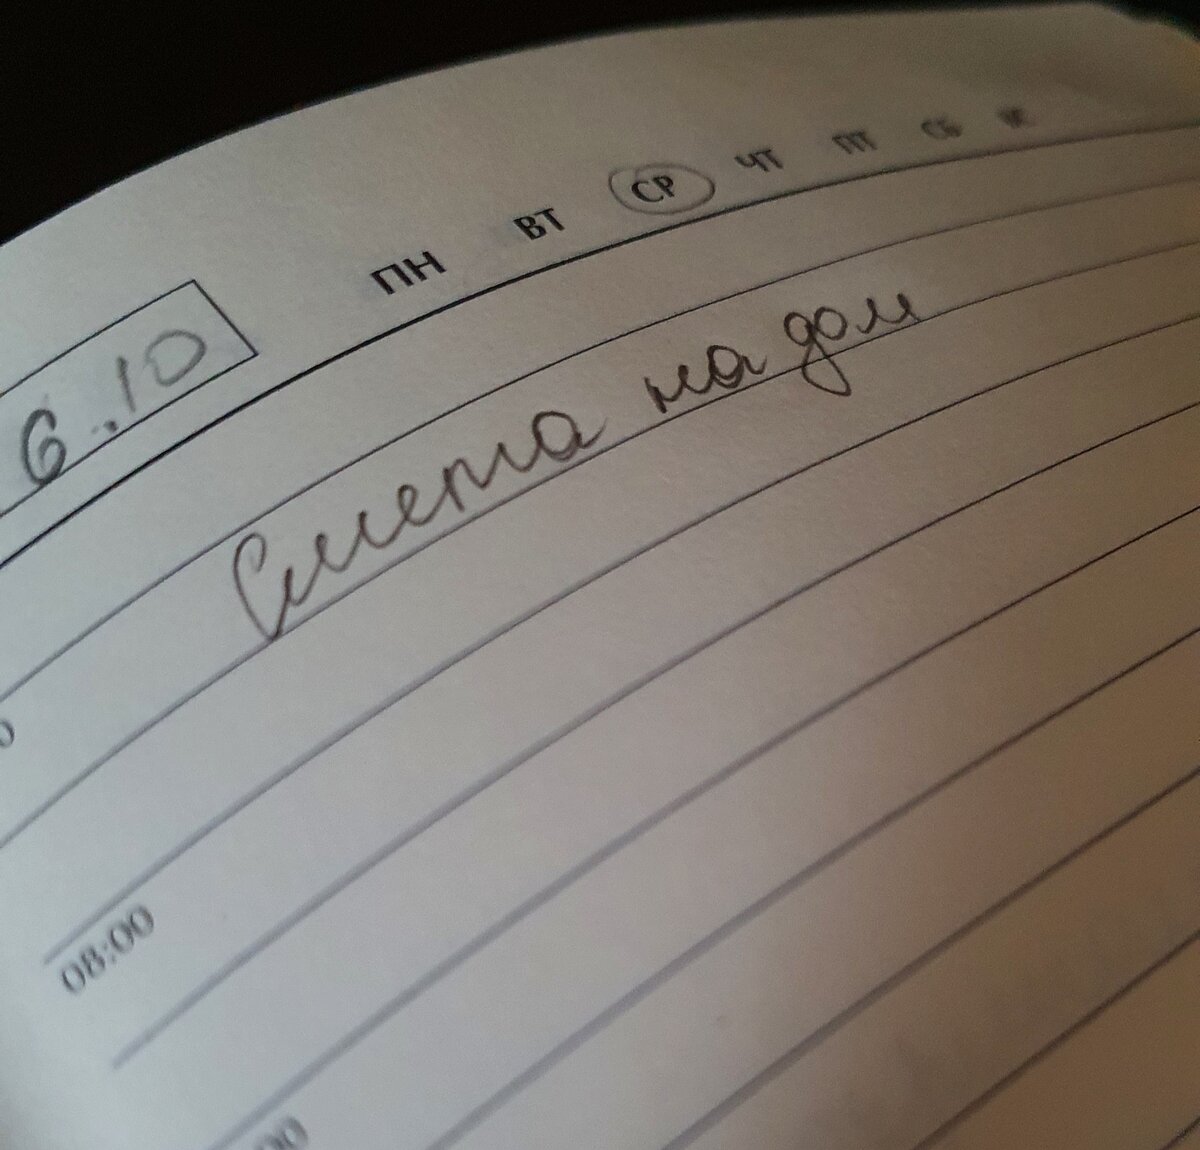 6.10
ПН ВТ СР ЧТ ПТ СБ ВС
Смета на дом
08:00